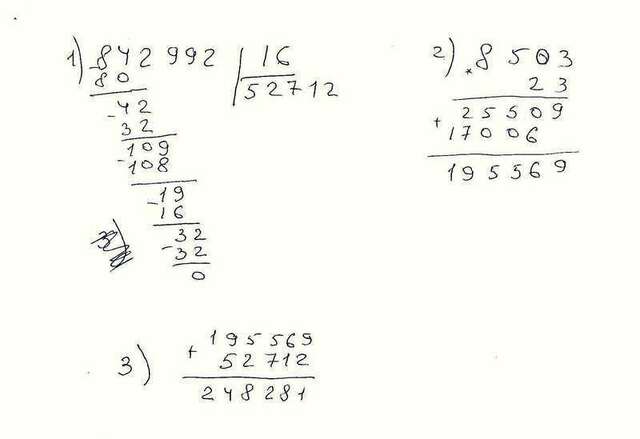 1) 842992 | 16
- 80 52712
- 42
32
109
- 108
- 19
16
32
- 32
0
2) 8503
× 23
+ 25509
17006
195569
3) + 195569
52712
248281